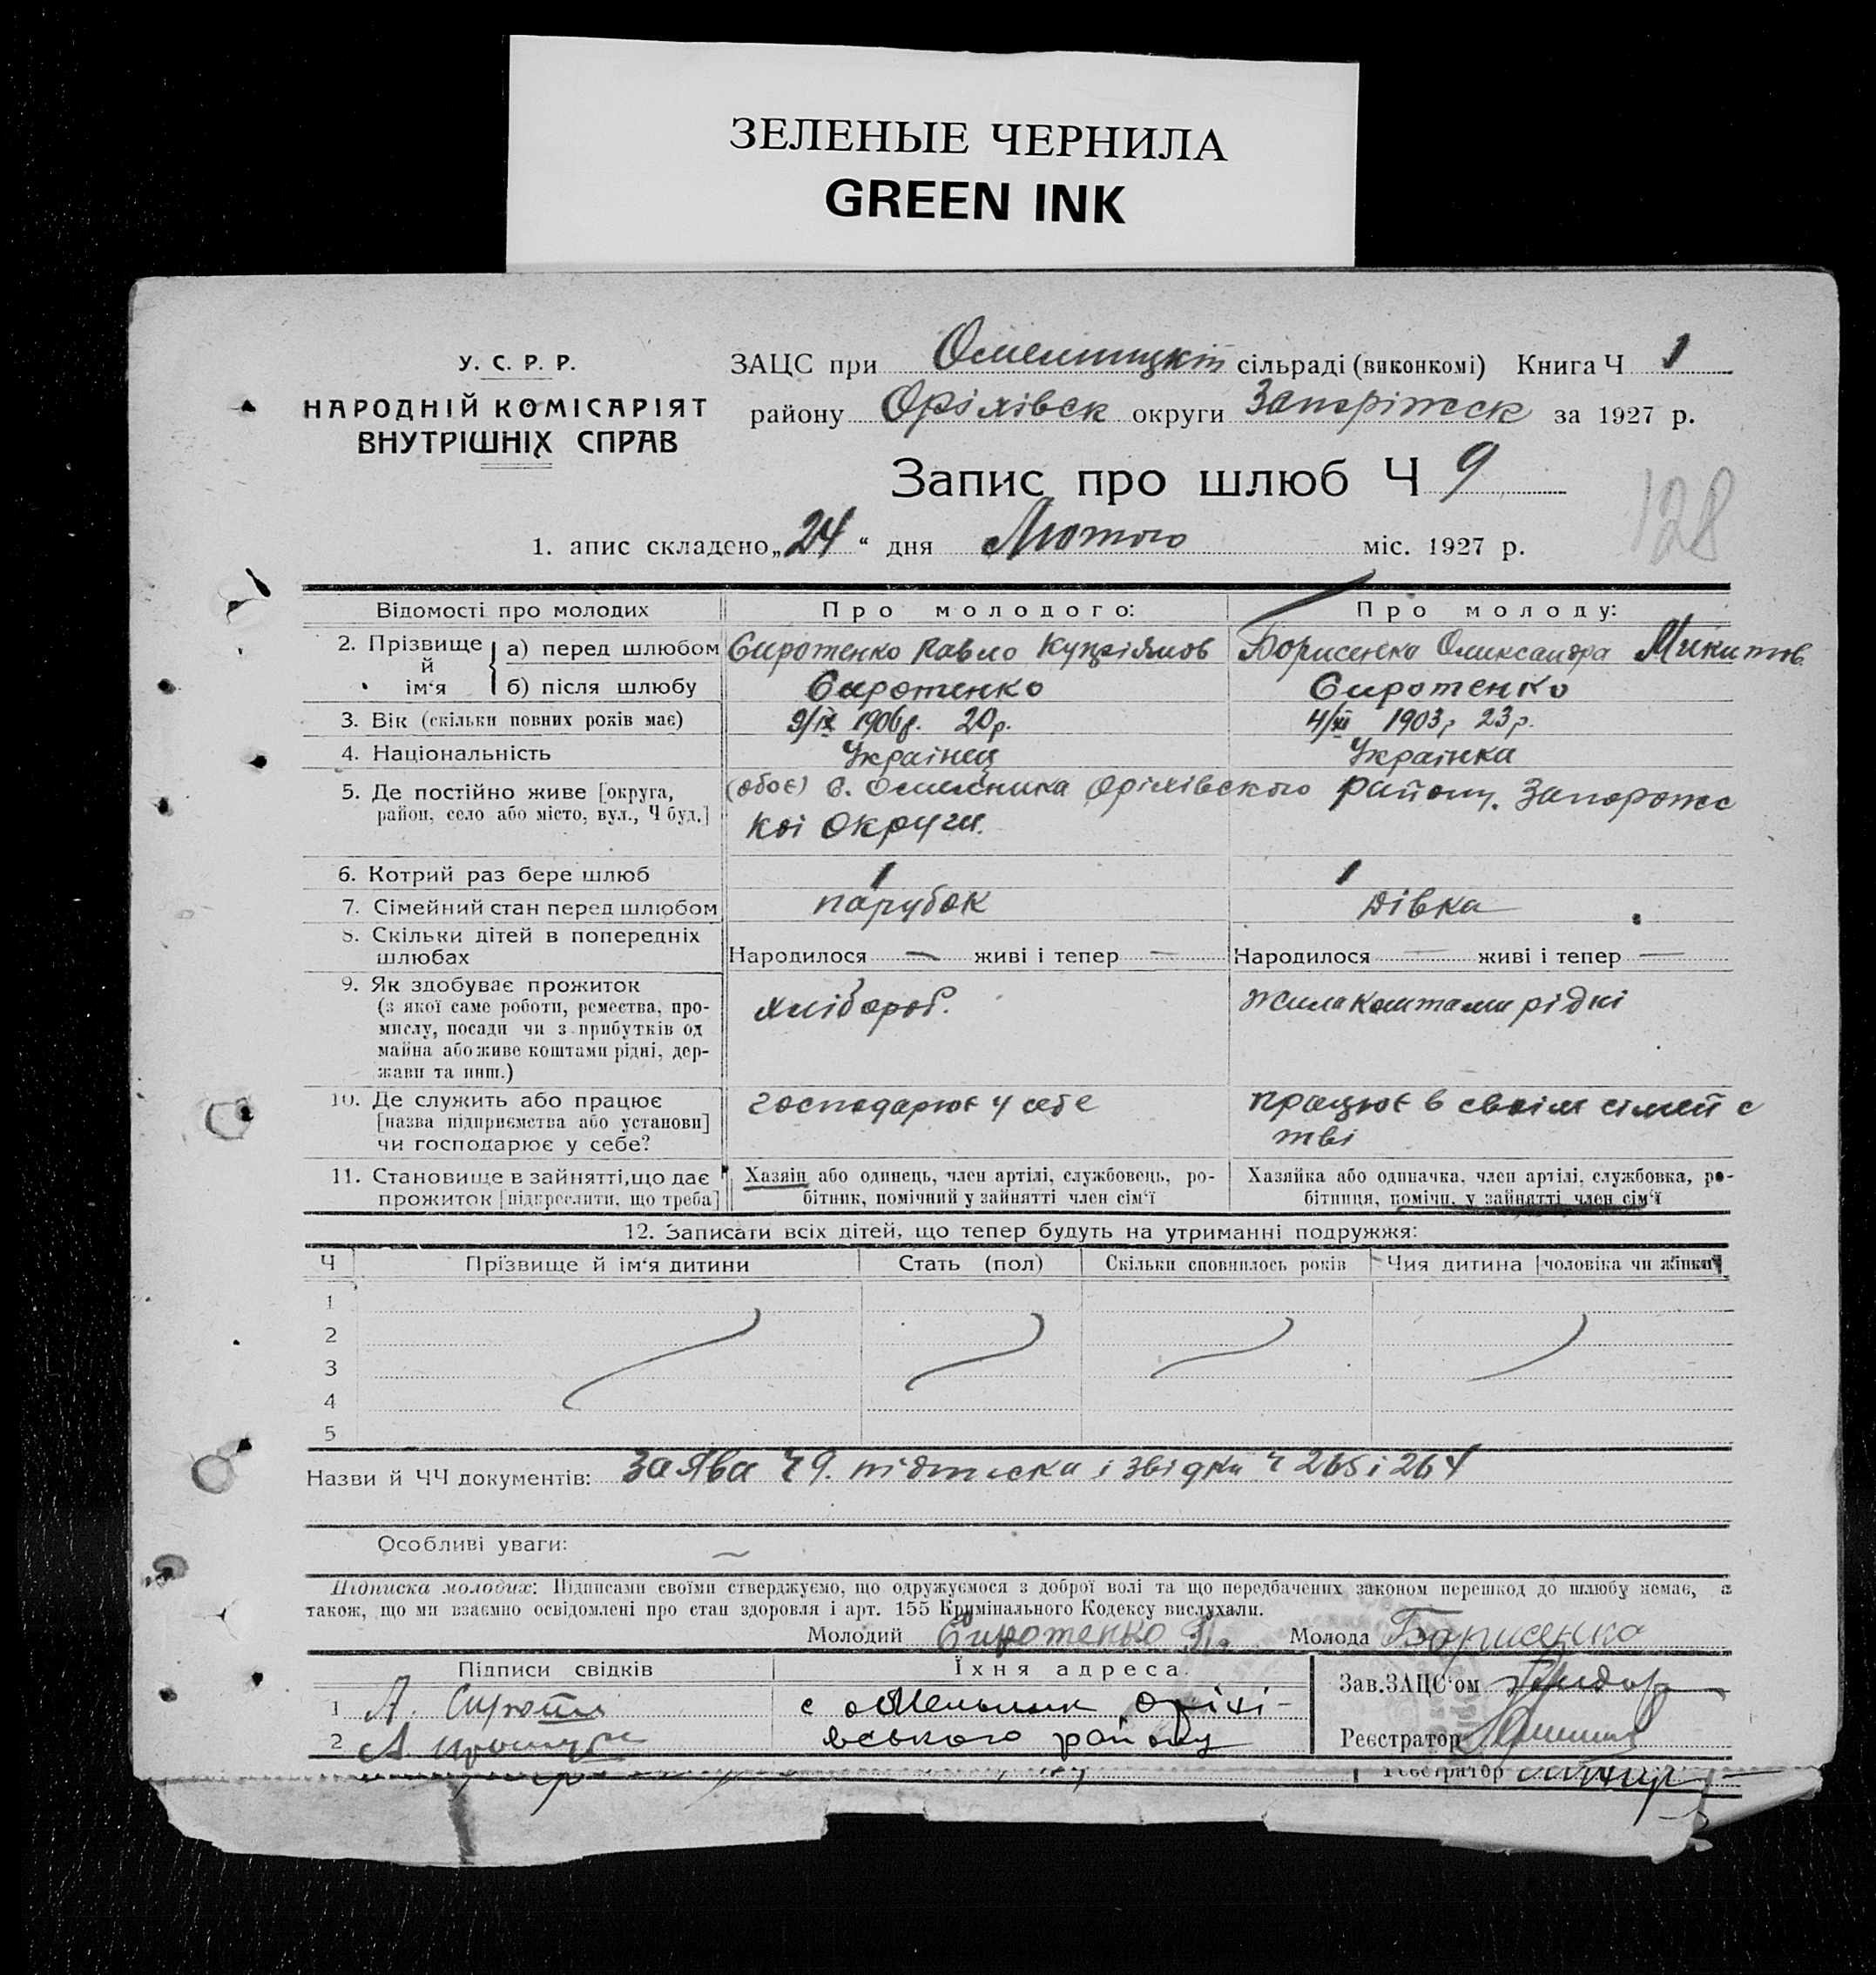 ЗЕЛЕНЫЕ ЧЕРНИЛА
GREEN INK
У. С. Р. Р.
НАРОДНІЙ КОМІСАРІЯТ
ВНУТРІШНІХ СПРАВ
ЗАЦС при сільраді (виконкомі) Книга Ч 1
району Оріхівск округи Запоріжск за 1927 р.
Запис про шлюб Ч 9
128
1. апис складено „24“ дня Лютого міс. 1927 р.
Відомості про молодих Про молодого: Про молоду:
2. Прізвище й ім'я а) перед шлюбом Сиротенко Павло Борисенко Олександра Микитов
б) після шлюбу Сиротенко Сиротенко
3. Вік (скільки повних років має) 9/IX 1906р. 20р. 4/XI 1903р 23р.
4. Національність Українец Українка
5. Де постійно живе [округа, район, село або місто, вул., Ч буд.] (обоє) с. Омельника Оріхівского району. Запорожс
кої округи.
6. Котрий раз бере шлюб 1 1
7. Сімейний стан перед шлюбом парубок дівка
8. Скільки дітей в попередніх шлюбах Народилося — живі і тепер — Народилося — живі і тепер —
9. Як здобуває прожиток
(з якої саме роботи, ремества, про-
мислу, посади чи з прибутків од
майна або живе коштами рідні, дер-
жави та инш.)
хлібороб. Жила коштами рідні
10. Де служить або працює
[назва підприємства або установи]
чи господарює у себе?
господарює у себе працює в своїм сімейс
тві
11. Становище в зайнятті, що дає
прожиток [підкреслити, що треба]
Хазяїн або одинець, член артілі, службовець, ро-
бітник, помічний у зайнятті член сім'ї
Хазяйка або одиначка, член артілі, службовка, ро-
бітниця, помічн. у зайнятті член сім'ї
12. Записати всіх дітей, що тепер будуть на утриманні подружжя:
Ч Прізвище й ім'я дитини Стать (пол) Скільки сповнилось років Чия дитина [чоловіка чи жінки]
1
2
3
4
5
Назви й ЧЧ документів: Заява Ч 9. підписка і звідки Ч 265 і 264
Особливі уваги: —
Підписка молодих: Підписами своїми стверджуємо, що одружуємося з доброї волі та що передбачених законом перешкод до шлюбу немає, а
також, що ми взаємно освідомлені про стан здоровля і арт. 155 Кримінального Кодексу вислухали.
Молодий Сиротенко Молода Борисенко
Підписи свідків Їхня адреса. Зав. ЗАЦС'ом
1 А. Сирота с омельник Оріхі-
2 А. вського району Реєстратор
Реєстратор